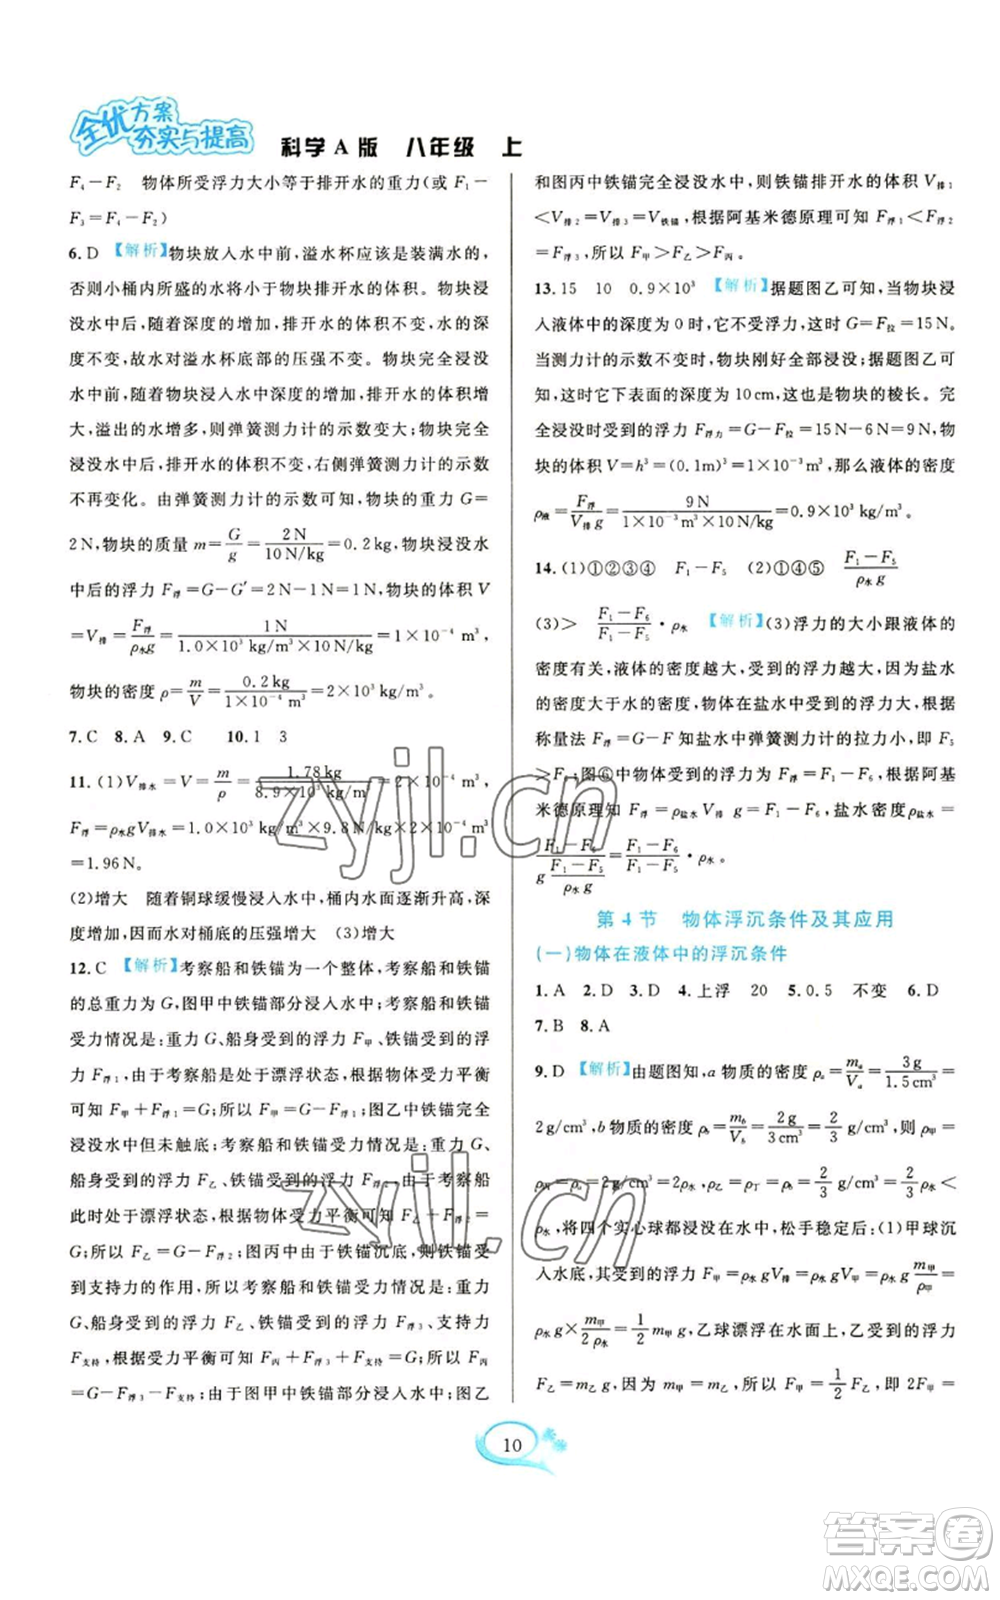 全优方案
夯实与提高
科学A版 八年级 上
F₄－F₂ 物体所受浮力大小等于排开水的重力(或 F₁－
F₃＝F₄－F₂)
6.D 【解析】物块放入水中前,溢水杯应该是装满水的,
否则小桶内所盛的水将小于物块排开水的体积。物块浸
没水中后,随着深度的增大,排开水的体积不变,水的深
度不变,故水对溢水杯底部的压强不变。物块完全浸没
水中前,随着物块浸入水中体积的增大,排开水的体积增
大,溢出的水增多,则弹簧测力计的示数变大;物块完全
浸没水中后,排开水的体积不变,右侧弹簧测力计的示数
不再变化。由弹簧测力计的示数可知,物块的重力 G＝
2 N,物块的质量 m＝G/g＝2 N/10 N/kg＝0.2 kg,物块浸没水
中后的浮力 F浮＝G－G′＝2 N－1 N＝1 N,物块的体积 V
＝V排＝F浮/ρ水g＝1 N/1.0×10³ kg/m³×10 N/kg＝1×10⁻⁴ m³,
物块的密度 ρ＝m/V＝0.2 kg/1×10⁻⁴ m³＝2×10³ kg/m³。
7.C 8.A 9.C 10.1 3
11.(1)V排水＝V＝m/ρ＝1.78 kg/8.9×10³ kg/m³＝2×10⁻⁴ m³,
F浮＝ρ水gV排水＝1.0×10³ kg/m³×9.8 N/kg×2×10⁻⁴ m³＝
1.96 N。
(2)增大 随着铜球缓慢浸入水中,桶内水面逐渐升高,深
度增大,因而水对桶底的压强增大 (3)增大
12.C 【解析】考察船和铁锚为一个整体,考察船和铁锚
的总重力为 G,图甲中铁锚部分浸入水中;考察船和铁锚
受力情况是:重力 G、船身受到的浮力 F甲、铁锚受到的浮
力 F浮1,由于考察船是漂浮状态,根据物体受力平衡
可知 F甲＋F浮1＝G;所以 F甲＝G－F浮1;图乙中铁锚完全
浸没水中但未触底;考察船和铁锚受力情况是:重力 G、
船身受到的浮力 F乙、铁锚受到的浮力 F浮2,由于考察船
此时处于漂浮状态,根据物体受力平衡可知 F乙＋F浮2＝
G,所以 F乙＝G－F浮2;图丙中由于铁锚沉底,则铁锚受
到支持力的作用,所以考察船和铁锚受力情况是:重力
G、船身受到的浮力 F乙、铁锚受到的浮力 F浮3、支持力
F支持,根据受力平衡可知 F丙＋F浮3＋F支持＝G,所以 F丙
＝G－F浮3－F支持;由于图甲中铁锚部分浸入水中,图乙
和图丙中铁锚完全浸没水中,则铁锚排开水的体积 V排1
＜V排2＝V排3＝V铁锚,根据阿基米德原理可知 F浮1＜F浮2
＝F浮3,所以 F甲＞F乙＞F丙。
13.15 10 0.9×10³ 【解析】据题图乙可知,当物块浸
入液体中的深度为 0 时,它不受浮力,这时 G＝F拉＝15 N。
当测力计的示数不变时,物块刚好全部浸没;据题图乙可
知,此时下表面的深度为 10 cm,这就是物块的棱长。完
全浸没时受到的浮力 F浮力＝G－F拉＝15 N－6 N＝9 N,物
块的体积 V＝h³＝(0.1m)³＝1×10⁻³ m³,那么液体的密度
ρ液＝F浮/V排g＝9 N/1×10⁻³ m³×10 N/kg＝0.9×10³ kg/m³。
14.(1)①②③④ F₁－F₅ (2)①②⑤ F₁－F₅/ρ水g
(3)＞ F₁－F₆/F₁－F₅·ρ水 【解析】(3)浮力的大小跟液体的
密度有关,液体的密度越大,受到的浮力越大,因为盐水
的密度大于水的密度,物体在盐水中受到的浮力大,根据
称量法 F浮＝G－F 知盐水中弹簧测力计的拉力小,即 F₅
＞F₆;图⑥中物体受到的浮力 F浮＝F₁－F₆,根据阿基
米德原理知 F浮＝ρ盐水V排g＝F₁－F₆,盐水密度 ρ盐水＝
F₁－F₆/g F₁－F₅/ρ水g＝F₁－F₆/F₁－F₅·ρ水。
第 4 节 物体浮沉条件及其应用
(一)物体在液体中的浮沉条件
1.A 2.D 3.D 4.上浮 20 5.0.5 不变 6.D
7.B 8.A
9.D 【解析】由题图知,a 物质的密度 ρa＝ma/Va＝3 g/1.5 cm³＝
2 g/cm³,b 物质的密度 ρb＝mb/Vb＝2 g/3 cm³＝2/3 g/cm³,则 ρ甲＝
ρ丙＝ρa＝2 g/cm³＞ρ水,ρ乙＝ρ丁＝ρb＝2/3 g/cm³＜
ρ水,将四个实心球都浸没在水中,松手稳定后:(1)甲球沉
入水底,其受到的浮力 F甲＝ρ水gV排＝ρ水gV甲＝ρ水g m甲/ρ甲＝
ρ水g×m甲/2ρ水＝1/2 m甲g,乙球漂浮在水面上,乙受到的浮力
F乙＝G乙＝m乙g,因为 m甲＝m乙,所以 F甲＝1/2 F乙,即 2F甲＝
10
zyjl.cn
zyjl.cn
答案圈
MXQE.COM